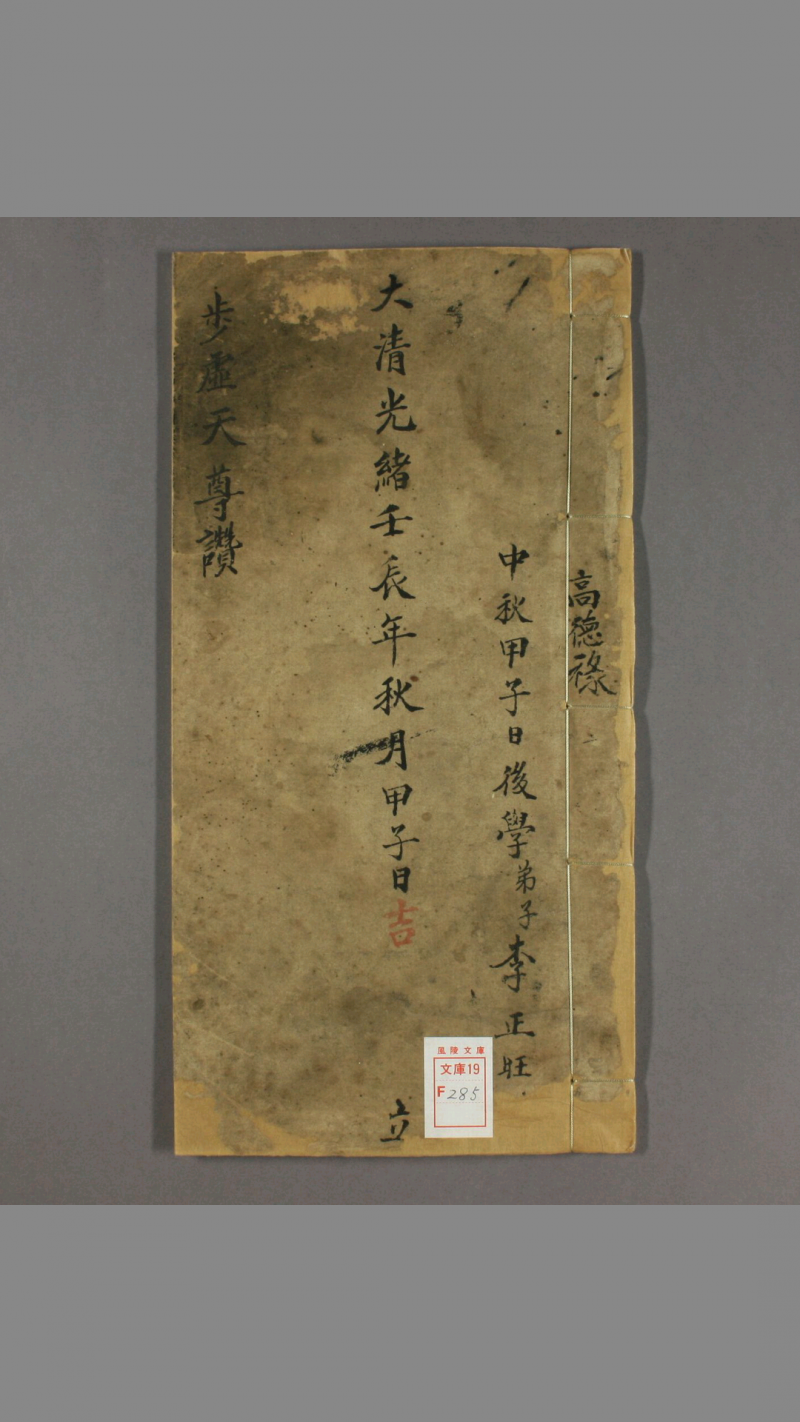 高德祿
中秋甲子日後學弟子李正旺
大清光緒壬辰年秋月甲子日吉立
步虛天尊讚
風陵文庫
文庫19
F285